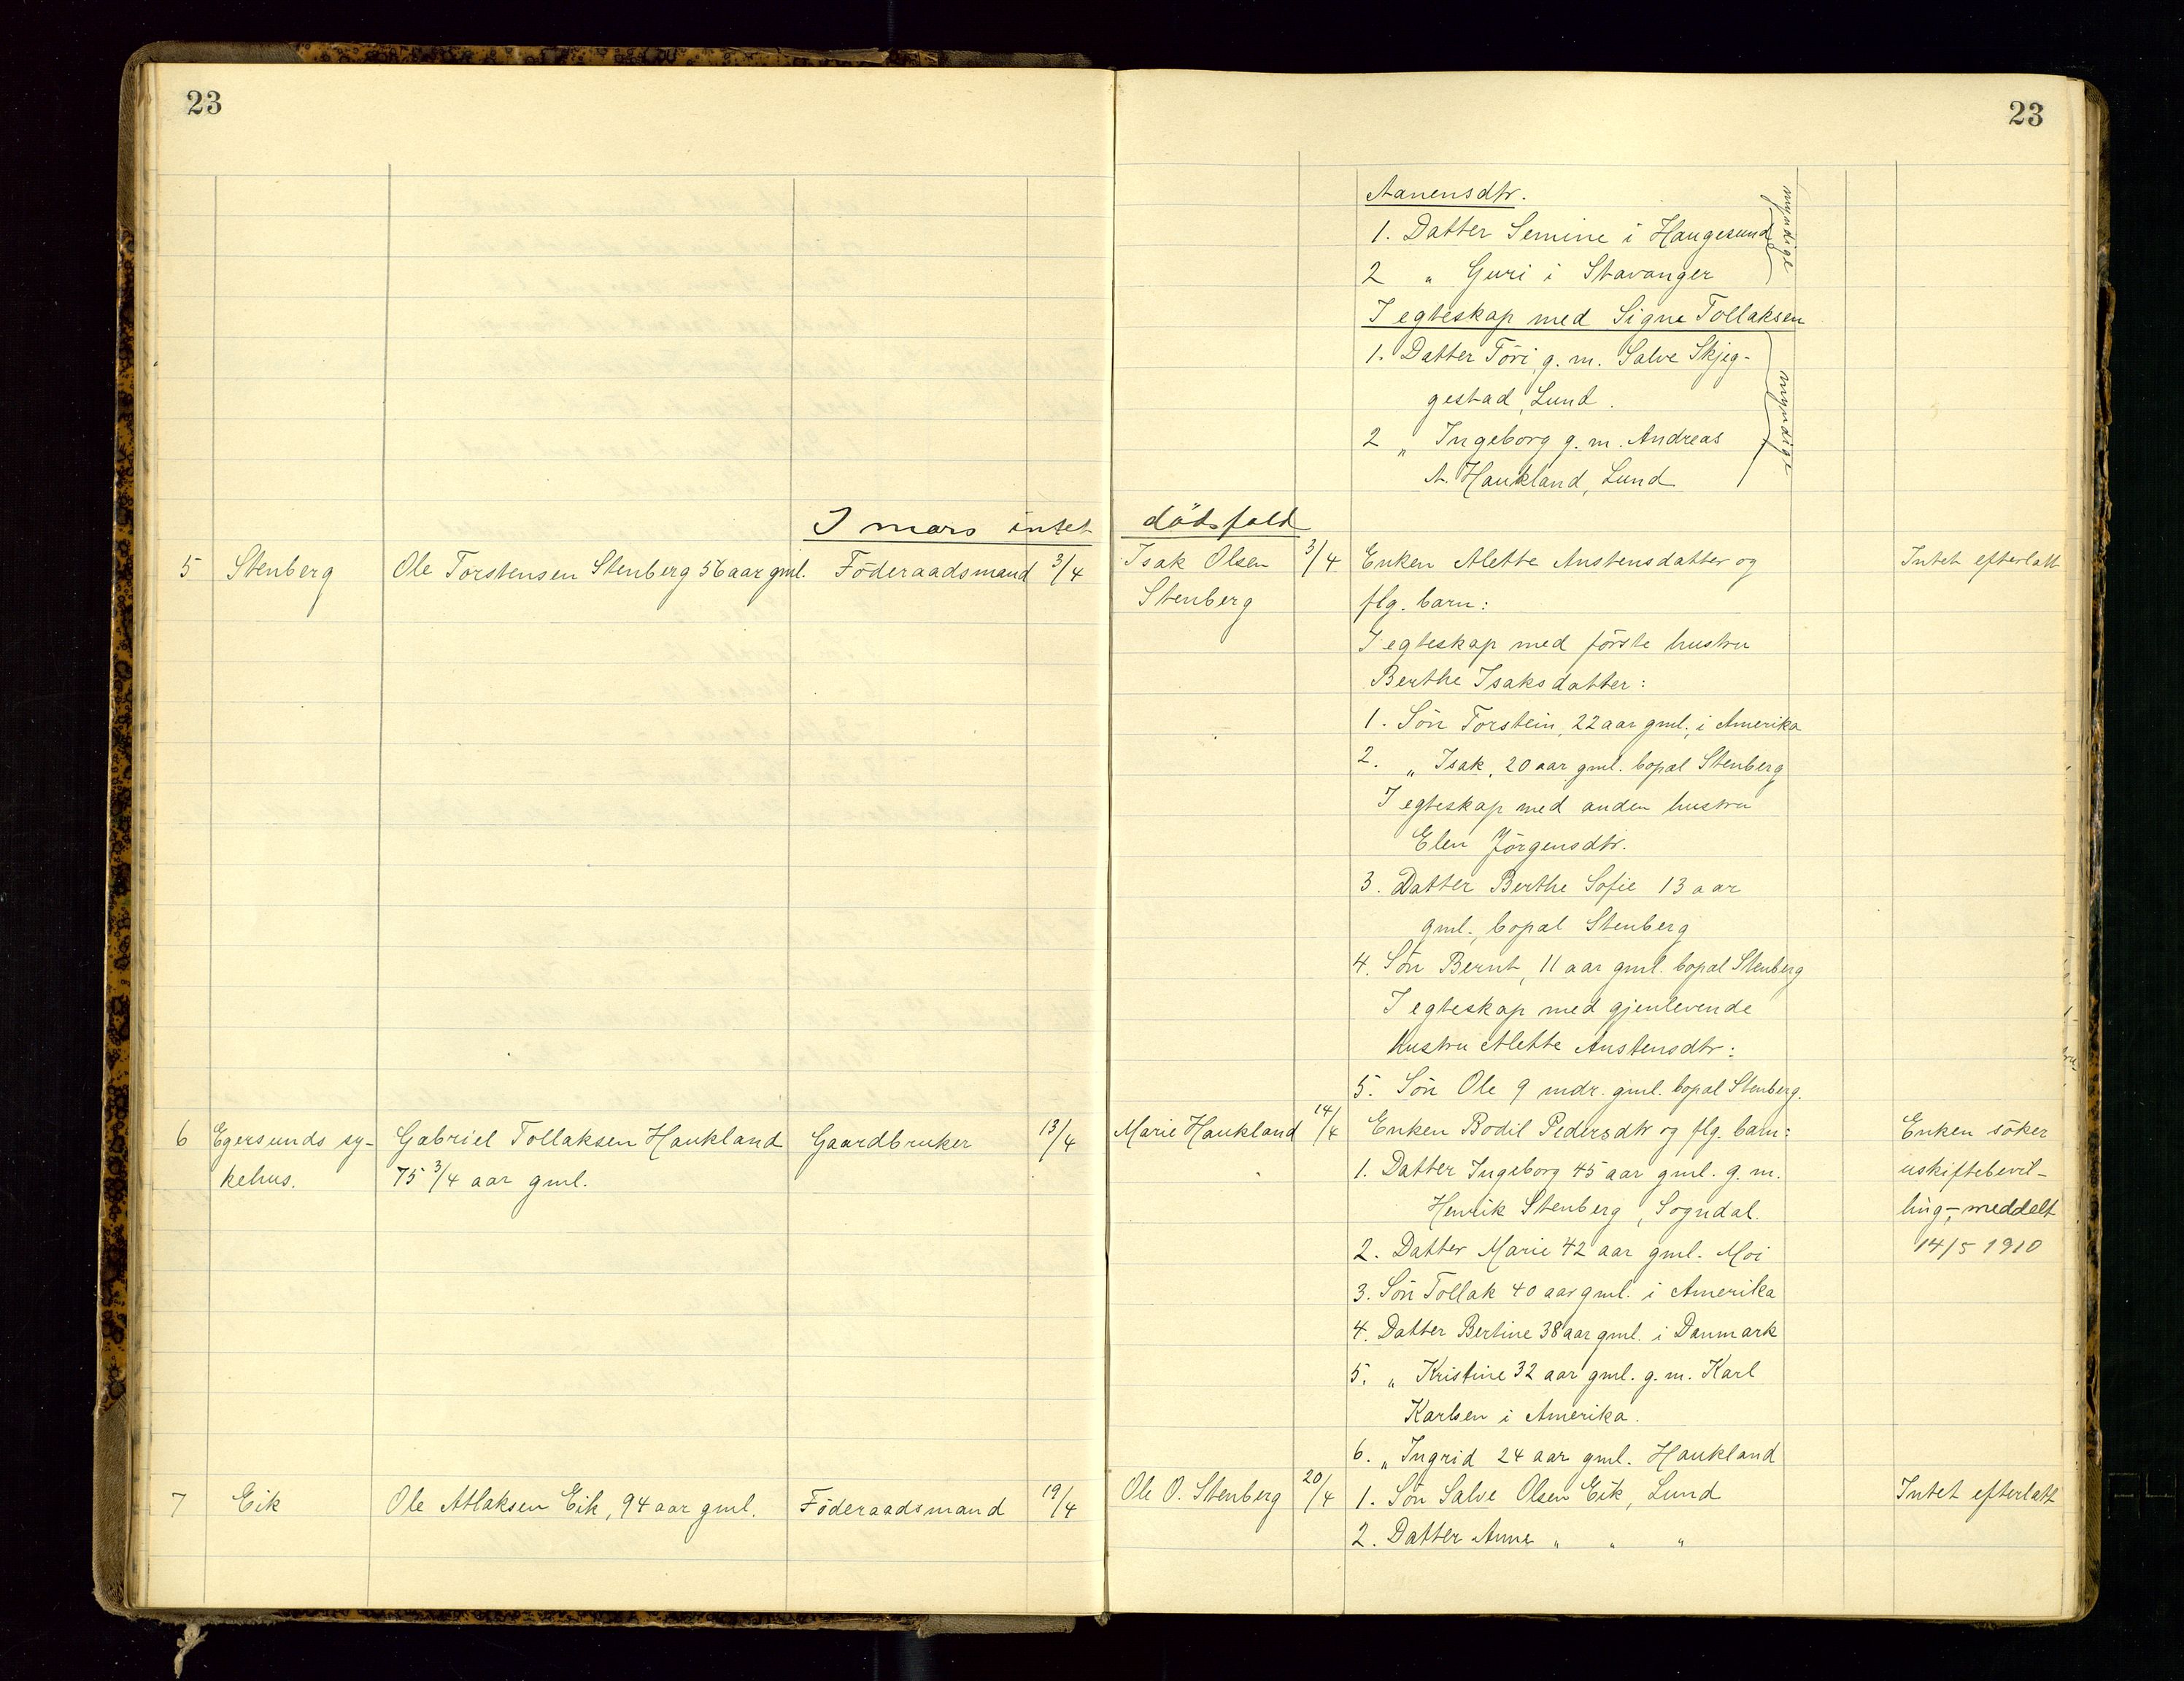 23
23
Aanensdtr.
1. Datter Semine i Haugesund
2 " Guri i Stavanger
myndige
I egteskap med Signe Tollaksen
1. Datter Töri, g. m. Salve Skjeg-
gestad, Lund.
2 " Ingeborg g. m. Andreas
A. Haukland, Lund
myndige
I mars intet dödsfald
5 Stenberg Ole Torstensen Stenberg 56 aar gml. Föderaadsmand 3/4 Isak Olsen 3/4 Enken Alette Austensdatter og Intet efterlatt
Stenberg flg. barn:
I egteskap med förste hustru
Berthe Isaksdatter:
1. Sön Torstein, 22 aar gml., i Amerika
2. " Isak, 20 aar gml. bopæl Stenberg
I egteskap med anden hustru
Elen Jörgensdtr.
3. Datter Berthe Sofie 13 aar
gml., bopæl Stenberg
4. Sön Bernt, 11 aar gml. bopæl Stenberg
I egteskap med gjenlevende
hustru Alette Austensdtr:
5. Sön Ole 9 mdr. gml. bopæl Stenberg.
6 Egersunds sy- Gabriel Tollaksen Haukland Gaardbruker 13/4 Marie Haukland 14/4 Enken Bodil Pedersdtr og flg. barn: Enken söker
kehus. 75 3/4 aar gml. 1. Datter Ingeborg 45 aar gml. g. m. uskiftebevil-
Henrik Stenberg, Sogndal. ling-, meddelt
2. Datter Marie 42 aar gml. Moi 14/5 1910
3. Sön Tollak 40 aar gml. i Amerika
4. Datter Bertine 38 aar gml. i Danmark
5. " Kristine 32 aar gml. g. m. Karl
Karlsen i Amerika.
6. " Ingrid 24 aar gml. Haukland
7 Eik Ole Atlaksen Eik, 94 aar gml. Föderaadsmand 19/4 Ole O. Stenberg 20/4 1. Sön Salve Olsen Eik, Lund Intet efterlatt
2. Datter Anne " " "